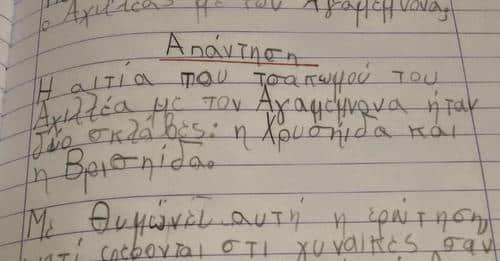 ο Αχιλλέας με τον Αγαμέμνονα;
Απάντηση
Η αιτία που τσακωμού του
Αχιλλέα με τον Αγαμέμνονα ήταν
δύο σκλάβες: η Χρυσηίδα και
η Βρισηίδα.
Με θυμώνει αυτή η ερώτηση
γιατί φέρονται στι γυναίκες σαν